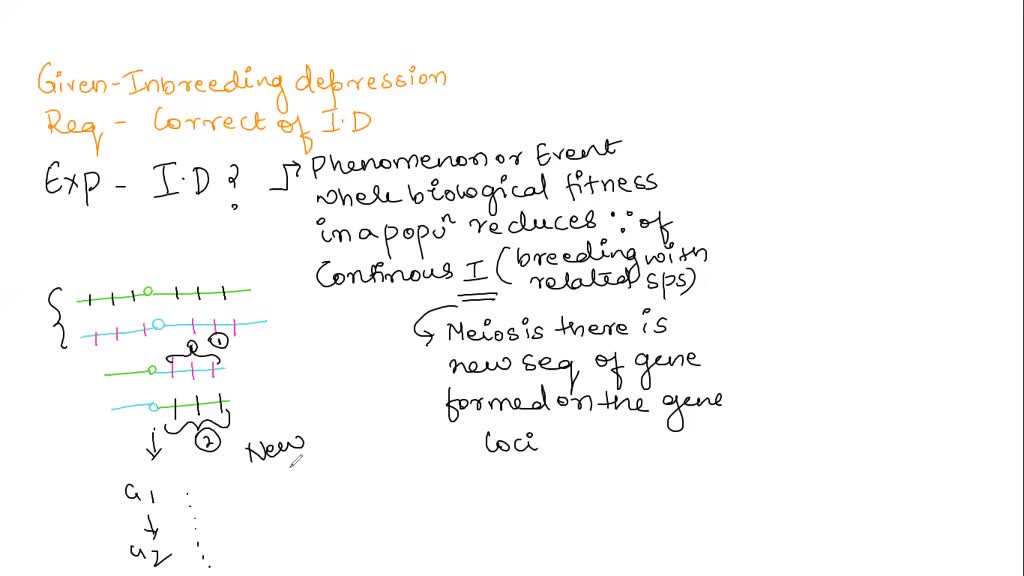 Given-Inbreeding depression
Req - Correct of I.D
Exp - I.D ?
Phenomenon or Event
where biological fitness
in a popuⁿ reduces ∵ of
Continous I (breeding with
related sps)
Meiosis there is
new seq of gene
formed on the gene
loci
①
②
New
G1
G2